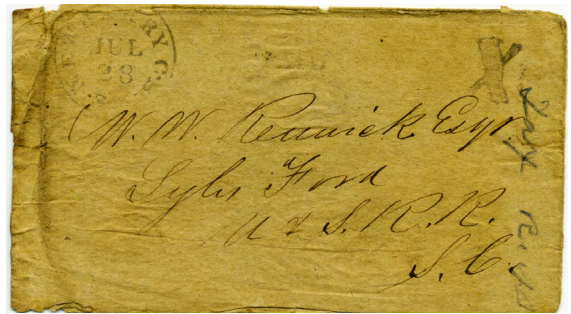 JUL
28
W. W. Renwick Esqr.
Lyles Ford
U & S. R. R.
S. C.